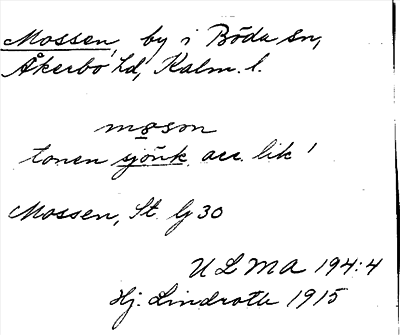 Mossen, by i Böda sn,
Åkerbo hd, Kalm. l.
møson
tonen sjönk, acc. lik'
Mossen, St. lj 30
ULMA 194:4
Hj. Lindroth 1915